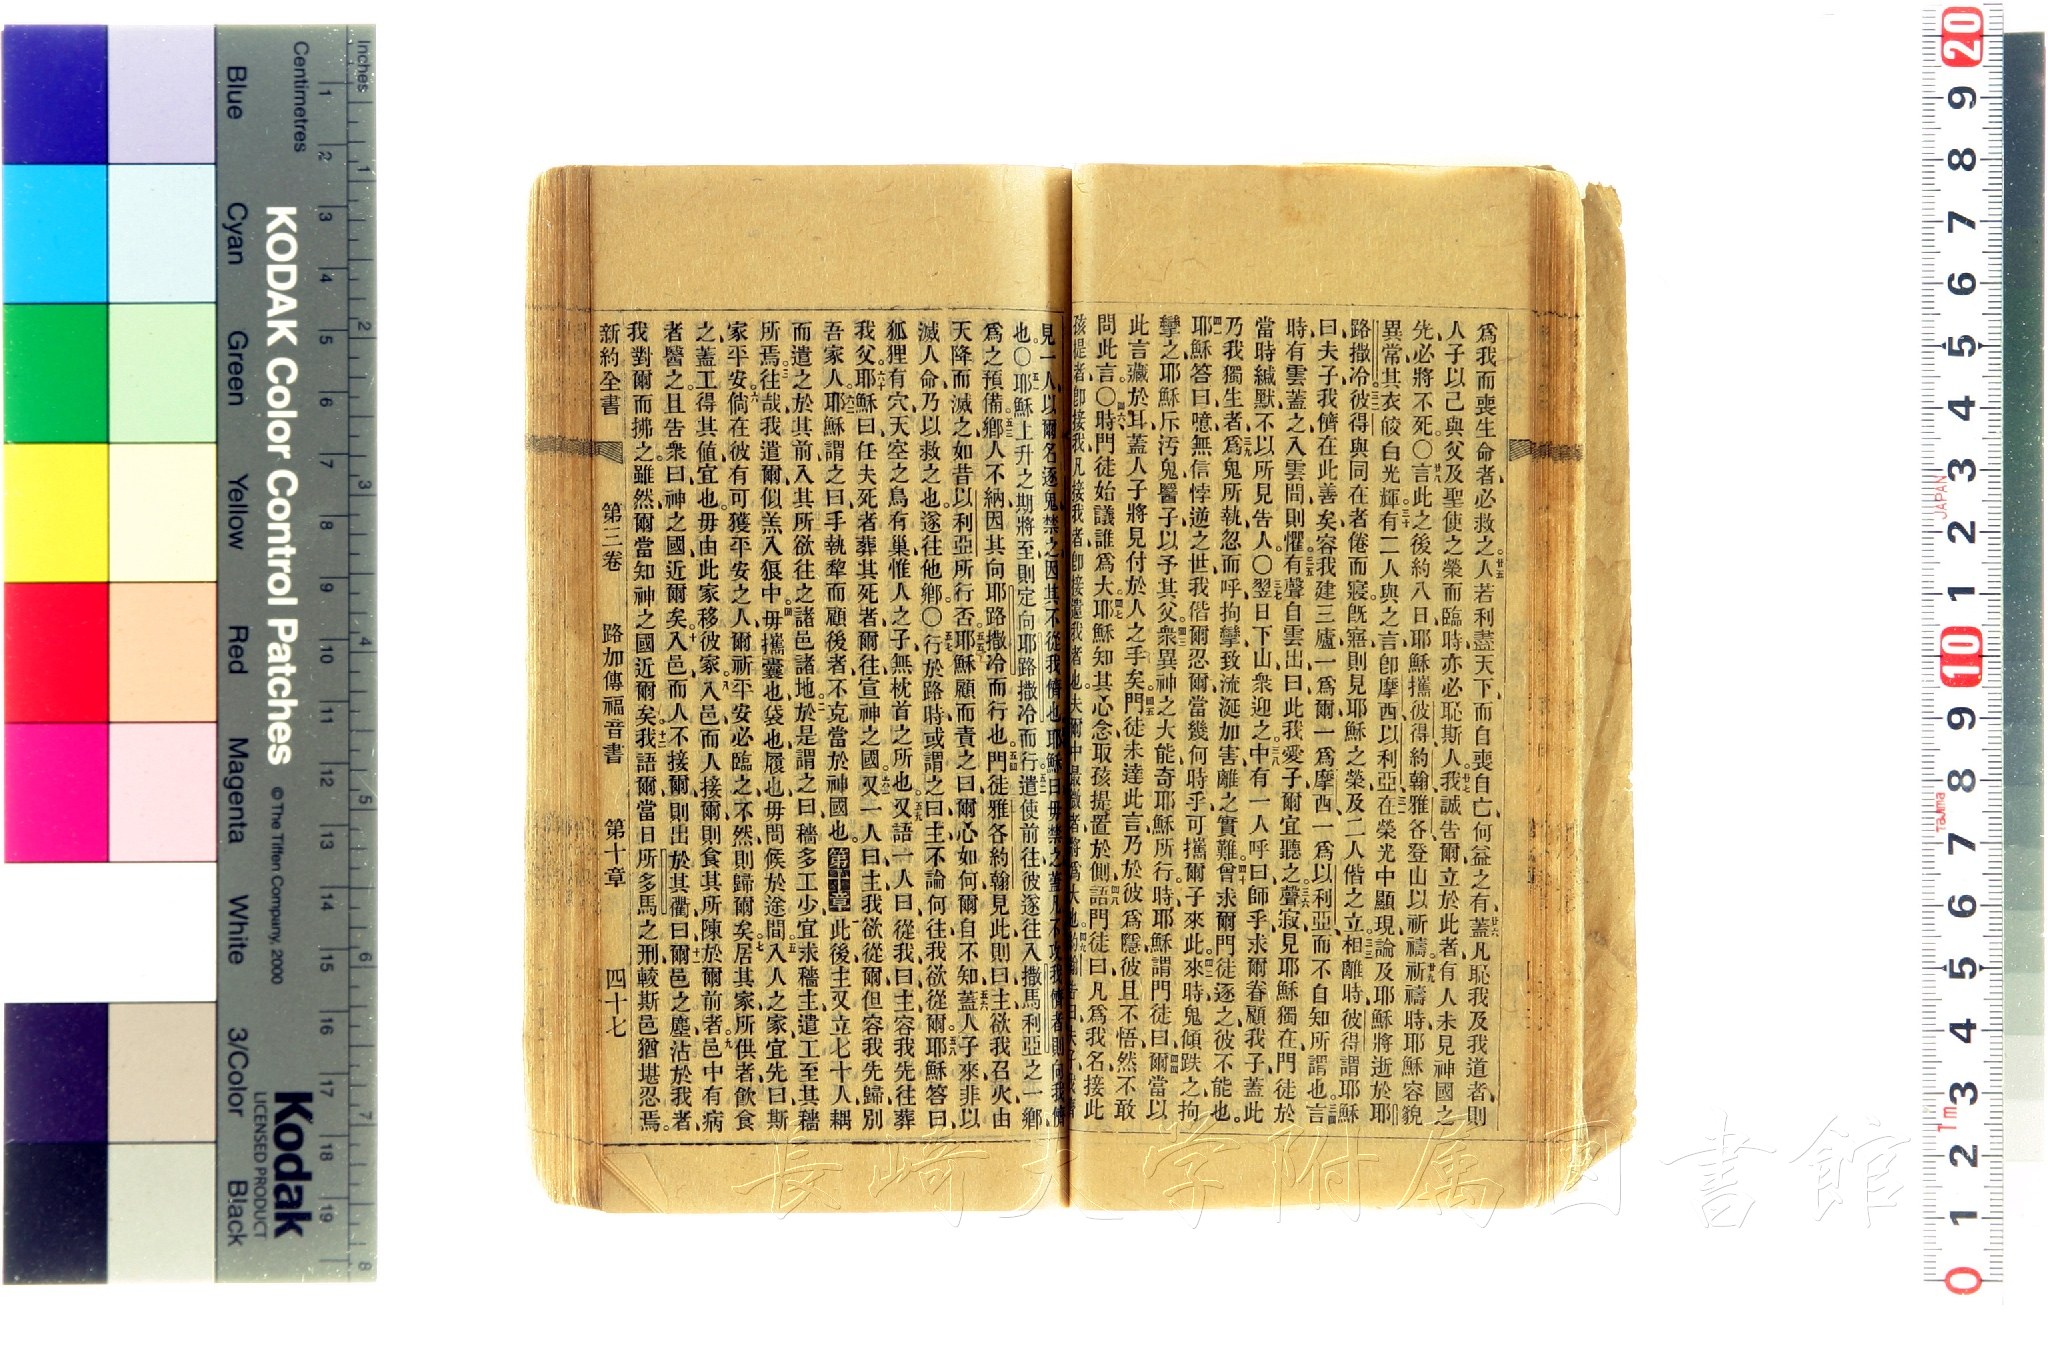 為我而喪生命者必救之人若利盡天下而自喪自亡何益之有蓋凡恥我及我道者則
人子以己與父及聖使之榮而臨時亦必恥斯人我誠告爾立於此者有人未見神國之
先必將不死〇言此之後約八日耶穌攜彼得約翰雅各登山以祈禱祈禱時耶穌容貌
異常其衣皎白光輝有二人與之言卽摩西以利亞在榮光中顯現論及耶穌將逝於耶
路撒冷彼得與同在者倦而寢旣寤則見耶穌之榮及二人偕之立相離時彼得謂耶穌
曰夫子我儕在此善矣容我建三廬一為爾一為摩西一為以利亞而不自知所謂也言
時有雲蓋之入雲間則懼有聲自雲出曰此我愛子爾宜聽之聲寂見耶穌獨在門徒於
當時緘默不以所見告人〇翌日下山衆迎之中有一人呼曰師乎求爾眷顧我子蓋此
乃我獨生者為鬼所執忽而呼拘攣致流涎加害離之實難曾求爾門徒逐之彼不能也
耶穌答曰噫無信悖逆之世我偕爾忍爾當幾何時乎可攜爾子來此來時鬼傾跌之拘
攣之耶穌斥汚鬼醫子以予其父衆異神之大能奇耶穌所行時耶穌謂門徒曰爾當以
此言藏於耳蓋人子將見付於人之手矣門徒未達此言乃於彼為隱彼且不悟然不敢
問此言〇時門徒始議誰為大耶穌知其心念取孩提置於側語門徒曰凡為我名接此
孩提者卽接我凡接我者卽接遣我者也夫爾中最微者將為大也約翰告曰夫子我儕
見一人以爾名逐鬼禁之因其不從我儕也耶穌曰毋禁之蓋凡不攻我儕者則向我儕
也〇耶穌上升之期將至則定向耶路撒冷而行遣使前往彼遂往入撒馬利亞之一鄉
為之預備鄉人不納因其向耶路撒冷而行也門徒雅各約翰見此則曰主欲我召火由
天降而滅之如昔以利亞所行否耶穌顧而責之曰爾心如何爾自不知蓋人子來非以
滅人命乃以救之也遂往他鄉〇行於路時或謂之曰主不論何往我欲從爾耶穌答曰
狐狸有穴天空之鳥有巢惟人之子無枕首之所也又語一人曰從我曰主容我先往葬
我父耶穌曰任夫死者葬其死者爾往宣神之國又一人曰主我欲從爾但容我先歸別
吾家人耶穌謂之曰手執犂而顧後者不克當於神國也第十章此後主又立七十人耦
而遣之於其前入其所欲往之諸邑諸地於是謂之曰穡多工少宜求穡主遣工至其穡
所焉往哉我遣爾似羔入狼中毋攜囊也袋也履也毋問候於途間入人之家宜先曰斯
家平安倘在彼有可獲平安之人爾祈平安必臨之不然則歸爾矣居其家所供者飲食
之蓋工得其値宜也毋由此家移彼家入邑而人接爾則食其所陳於爾前者邑中有病
者醫之且告衆曰神之國近爾矣入邑而人不接爾則出於其衢曰爾邑之塵沾於我者
我對爾而拂之雖然爾當知神之國近爾矣我語爾當日所多馬之刑較斯邑猶堪忍焉
新約全書 第三卷 路加傳福音書 第十章 四十七
Inches
Centimetres
KODAK Color Control Patches
© The Tiffen Company, 2000
Kodak
LICENSED PRODUCT
Blue Cyan Green Yellow Red Magenta White 3/Color Black
JAPAN
Tajima
長崎大学附属図書館